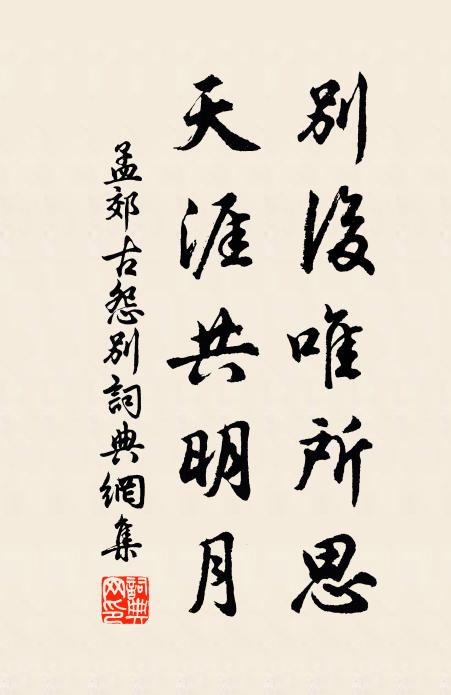 別後唯所思
天涯共明月
孟郊古怨別詞典網集
詞典網印